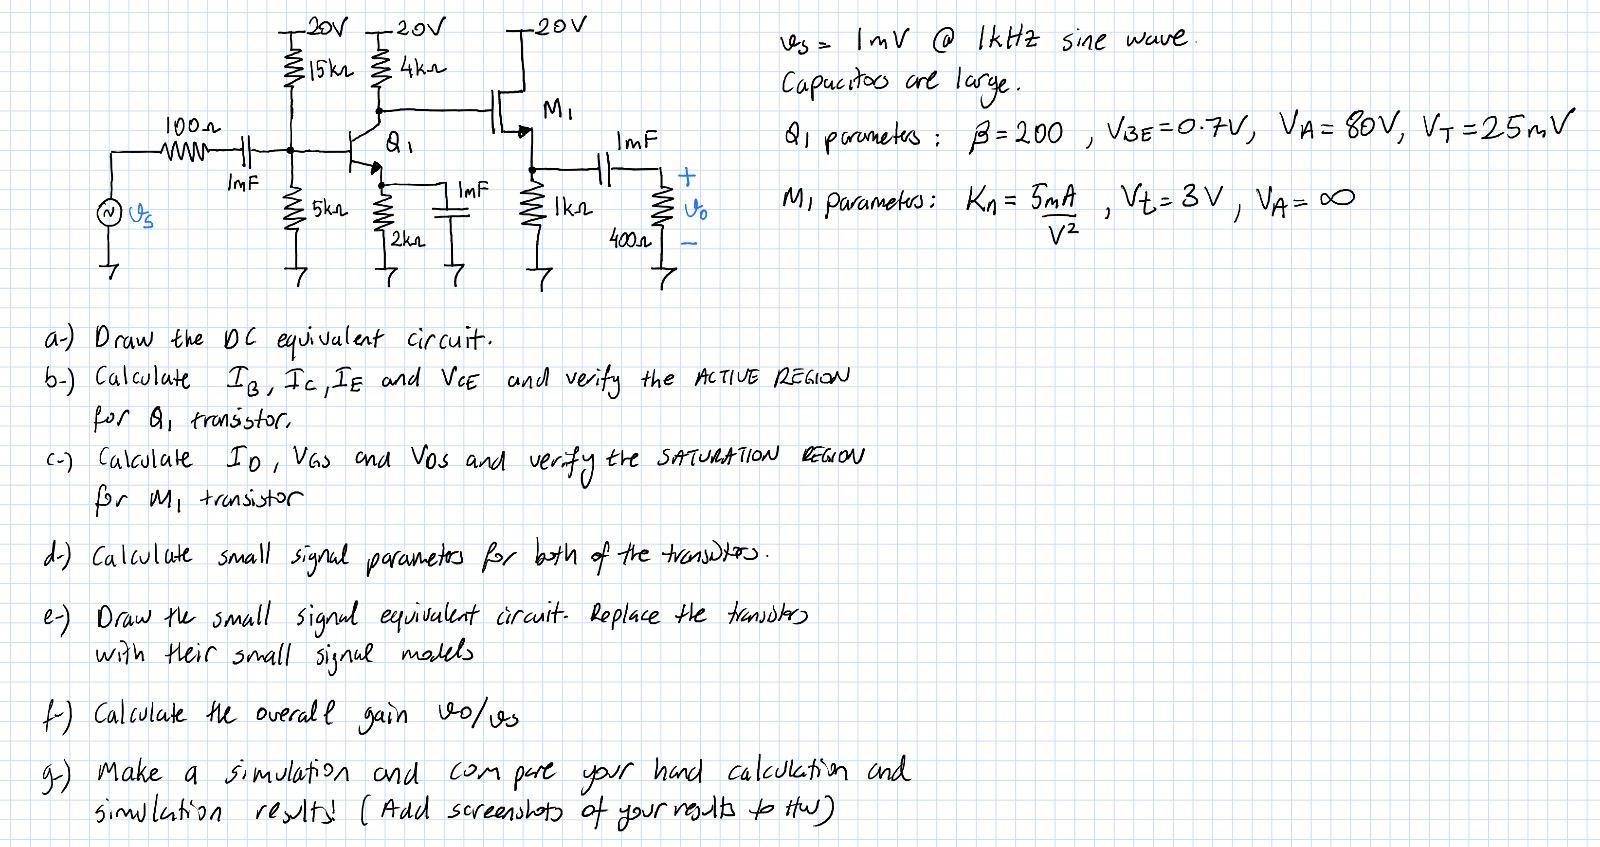 20V 20V 20V
15kΩ 4kΩ M1
100Ω Q1 1mF
1mF 5kΩ 1mF 1kΩ + vo −
vs 2kΩ 400Ω
vs = 1mV @ 1kHz sine wave.
Capacitors are large.
Q1 parameters : β=200 , VBE=0.7V, VA= 80V, VT=25mV
M1 parameters: Kn = 5mA/V² , Vt= 3V, VA= ∞
a-) Draw the DC equivalent circuit.
b-) Calculate IB, IC, IE and VCE and verify the ACTIVE REGION
for Q1 transistor.
c-) Calculate ID, VGS and VDS and verify the SATURATION REGION
for M1 transistor
d-) Calculate small signal parameters for both of the transistors.
e-) Draw the small signal equivalent circuit. Replace the transistors
with their small signal models
f-) Calculate the overall gain vo/vs
g-) Make a simulation and compare your hand calculation and
simulation results! (Add screenshots of your results to HW)